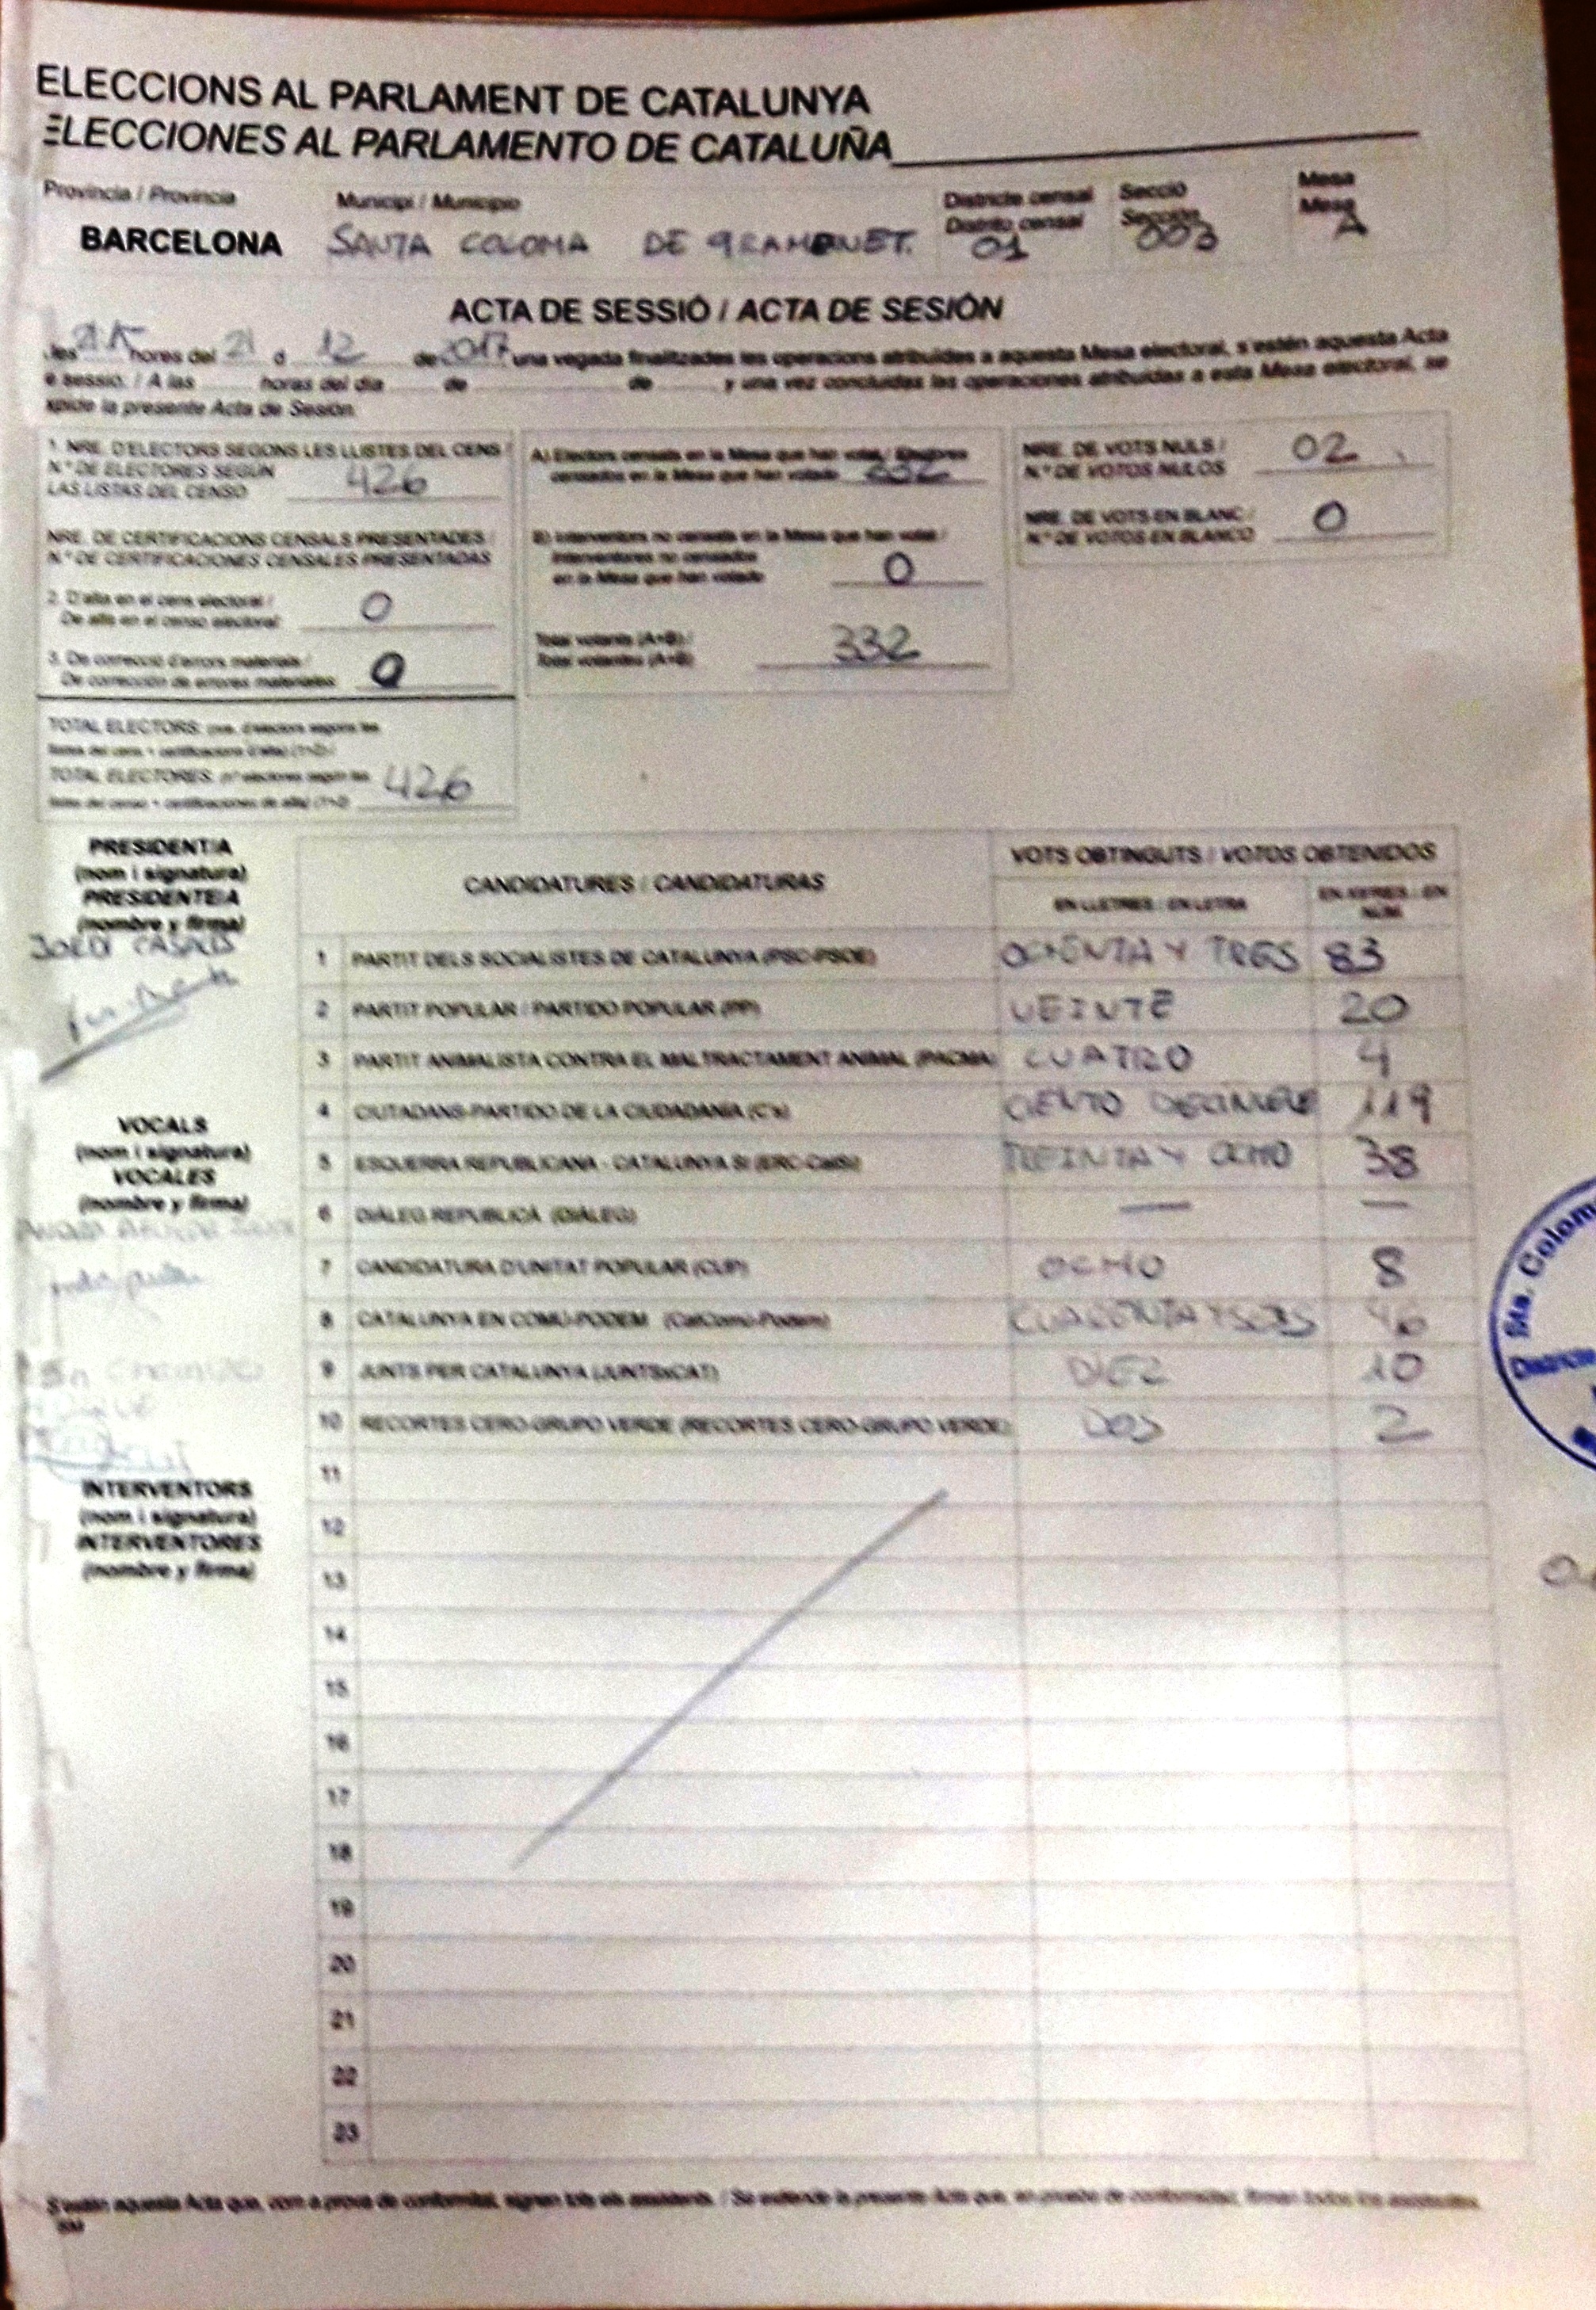 ELECCIONS AL PARLAMENT DE CATALUNYA
ELECCIONES AL PARLAMENTO DE CATALUÑA
Provincia / Provincia
Municipi / Municipio
Districte censal
Distrito censal
Secció
Sección
Mesa
Mesa
BARCELONA
SANTA COLOMA DE GRAMENET.
01
003
A
ACTA DE SESSIÓ / ACTA DE SESIÓN
les hores del 21 d 12 de 2017 una vegada finalitzades les operacions atribuïdes a aquesta Mesa electoral, s'estén aquesta Acta
e sessio. / A las horas del día de de y una vez concluidas las operaciones atribuidas a esta Mesa electoral, se
xpide la presente Acta de Sesión.
1. NRE. D'ELECTORS SEGONS LES LLISTES DEL CENS /
N.º DE ELECTORES SEGÚN
LAS LISTAS DEL CENSO 426
NRE. DE CERTIFICACIONS CENSALS PRESENTADES /
N.º DE CERTIFICACIONES CENSALES PRESENTADAS
2. D'alta en el cens electoral /
De alta en el censo electoral: 0
3. De correcció d'errors materials /
De corrección de errores materiales: 0
TOTAL ELECTORS: (nre. d'electors segons les
llistes del cens + certificacions d'alta) (1+2) /
TOTAL ELECTORES: (nº electores según las
listas del censo + certificaciones de alta) (1+2) 426
A) Electors censats en la Mesa que han votat / Electores
censados en la Mesa que han votado 332
B) Interventors no censats en la Mesa que han votat /
Interventores no censados
en la Mesa que han votado 0
Total votants (A+B) /
Total votantes (A+B) 332
NRE. DE VOTS NULS /
N.º DE VOTOS NULOS 02
NRE. DE VOTS EN BLANC /
N.º DE VOTOS EN BLANCO 0
PRESIDENT/A
(nom i signatura)
PRESIDENTE/A
(nombre y firma)
JORDI
VOCALS
(nom i signatura)
VOCALES
(nombre y firma)
INTERVENTORS
(nom i signatura)
INTERVENTORES
(nombre y firma)
CANDIDATURES / CANDIDATURAS
VOTS OBTINGUTS / VOTOS OBTENIDOS
EN LLETRES / EN LETRA
EN XIFRES / EN
NÚM.
1 PARTIT DELS SOCIALISTES DE CATALUNYA (PSC-PSOE) OCHENTA Y TRES 83
2 PARTIT POPULAR / PARTIDO POPULAR (PP) VEINTE 20
3 PARTIT ANIMALISTA CONTRA EL MALTRACTAMENT ANIMAL (PACMA) CUATRO 4
4 CIUTADANS-PARTIDO DE LA CIUDADANÍA (C's) CIENTO 119
5 ESQUERRA REPUBLICANA - CATALUNYA SÍ (ERC-CatSí) TREINTA Y OCHO 38
6 DIÀLEG REPUBLICÀ (DIÀLEG) — —
7 CANDIDATURA D'UNITAT POPULAR (CUP) OCHO 8
8 CATALUNYA EN COMÚ-PODEM (CatComú-Podem) CUARENTA Y SEIS 46
9 JUNTS PER CATALUNYA (JUNTSxCAT) DIEZ 10
10 RECORTES CERO-GRUPO VERDE (RECORTES CERO-GRUPO VERDE) DOS 2
11
12
13
14
15
16
17
18
19
20
21
22
23
Sta. Colom
Districte
S'estén aquesta Acta que, com a prova de conformitat, signen tots els assistents. / Se extiende la presente Acta que, en prueba de conformidad, firman todos los asistentes.